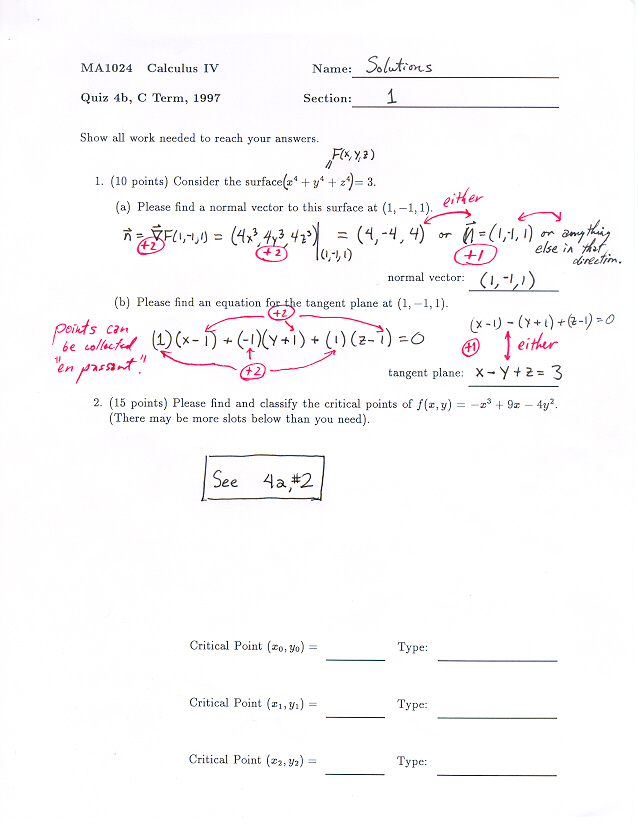 MA1024 Calculus IV Name: Solutions
Quiz 4b, C Term, 1997 Section: 1
Show all work needed to reach your answers.
F(x,y,z)
"
1. (10 points) Consider the surface (x⁴ + y⁴ + z⁴) = 3.
(a) Please find a normal vector to this surface at (1, −1, 1). either
n⃗ = ∇⃗F(1,-1,1) = (4x³, 4y³, 4z³)|(1,-1,1) = (4,-4,4) or n⃗ = (1,-1,1) or anything
else in that
direction.
+2 +2 +1
normal vector: (1,-1,1)
(b) Please find an equation for the tangent plane at (1, −1, 1).
+2
points can
be collected
"en passant."
(1)(x-1) + (-1)(y+1) + (1)(z-1) = 0
+2
(x-1) - (y+1) + (z-1) = 0
+1 either
tangent plane: x - y + z = 3
2. (15 points) Please find and classify the critical points of f(x, y) = −x³ + 9x − 4y².
(There may be more slots below than you need).
See 4a,#2
Critical Point (x₀, y₀) = Type:
Critical Point (x₁, y₁) = Type:
Critical Point (x₂, y₂) = Type: